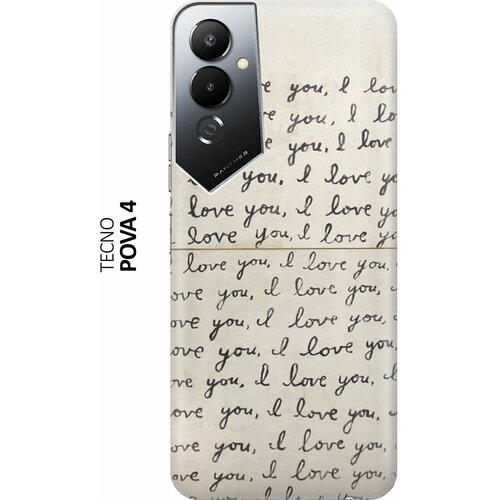 TECNO
POVA 4
PANTHER
you, I lov
you, I lov
you, I love
you, I love y
love you, I love yo
love you, I love yo
love you, I love you,
ove you, I love you,
ove you, I love you,
ove you, I love you,
ove you, I love you, I
ove you, I love you,
ove you, I love you,
ove you, I love you,